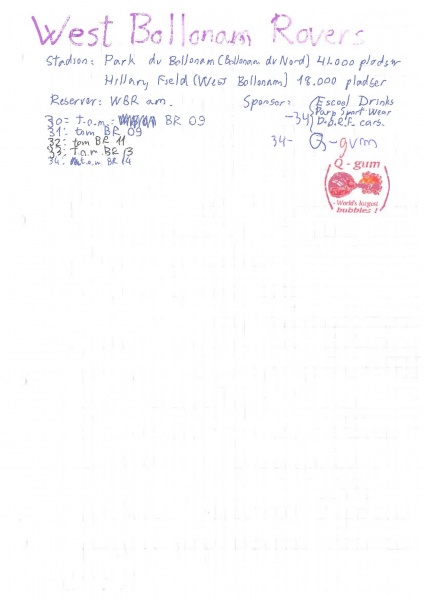 West Bollonam Rovers
Stadion: Park du Bollonam (Bollonam du Nord) 41.000 pladser
Hillary Field (West Bollonam) 18.000 pladser
Reserver: WBR am.
Sponsor: Escool Drinks
-34) Parp Sport Wear
D.o.R.F. cars.
30: t.o.m. BR 09
31: tom BR 09
32: tom BR 11
33: t.o.m. BR 13
34: t.o.m BR 14
34- Q-gum
Q-gum
- World's
bubbles!